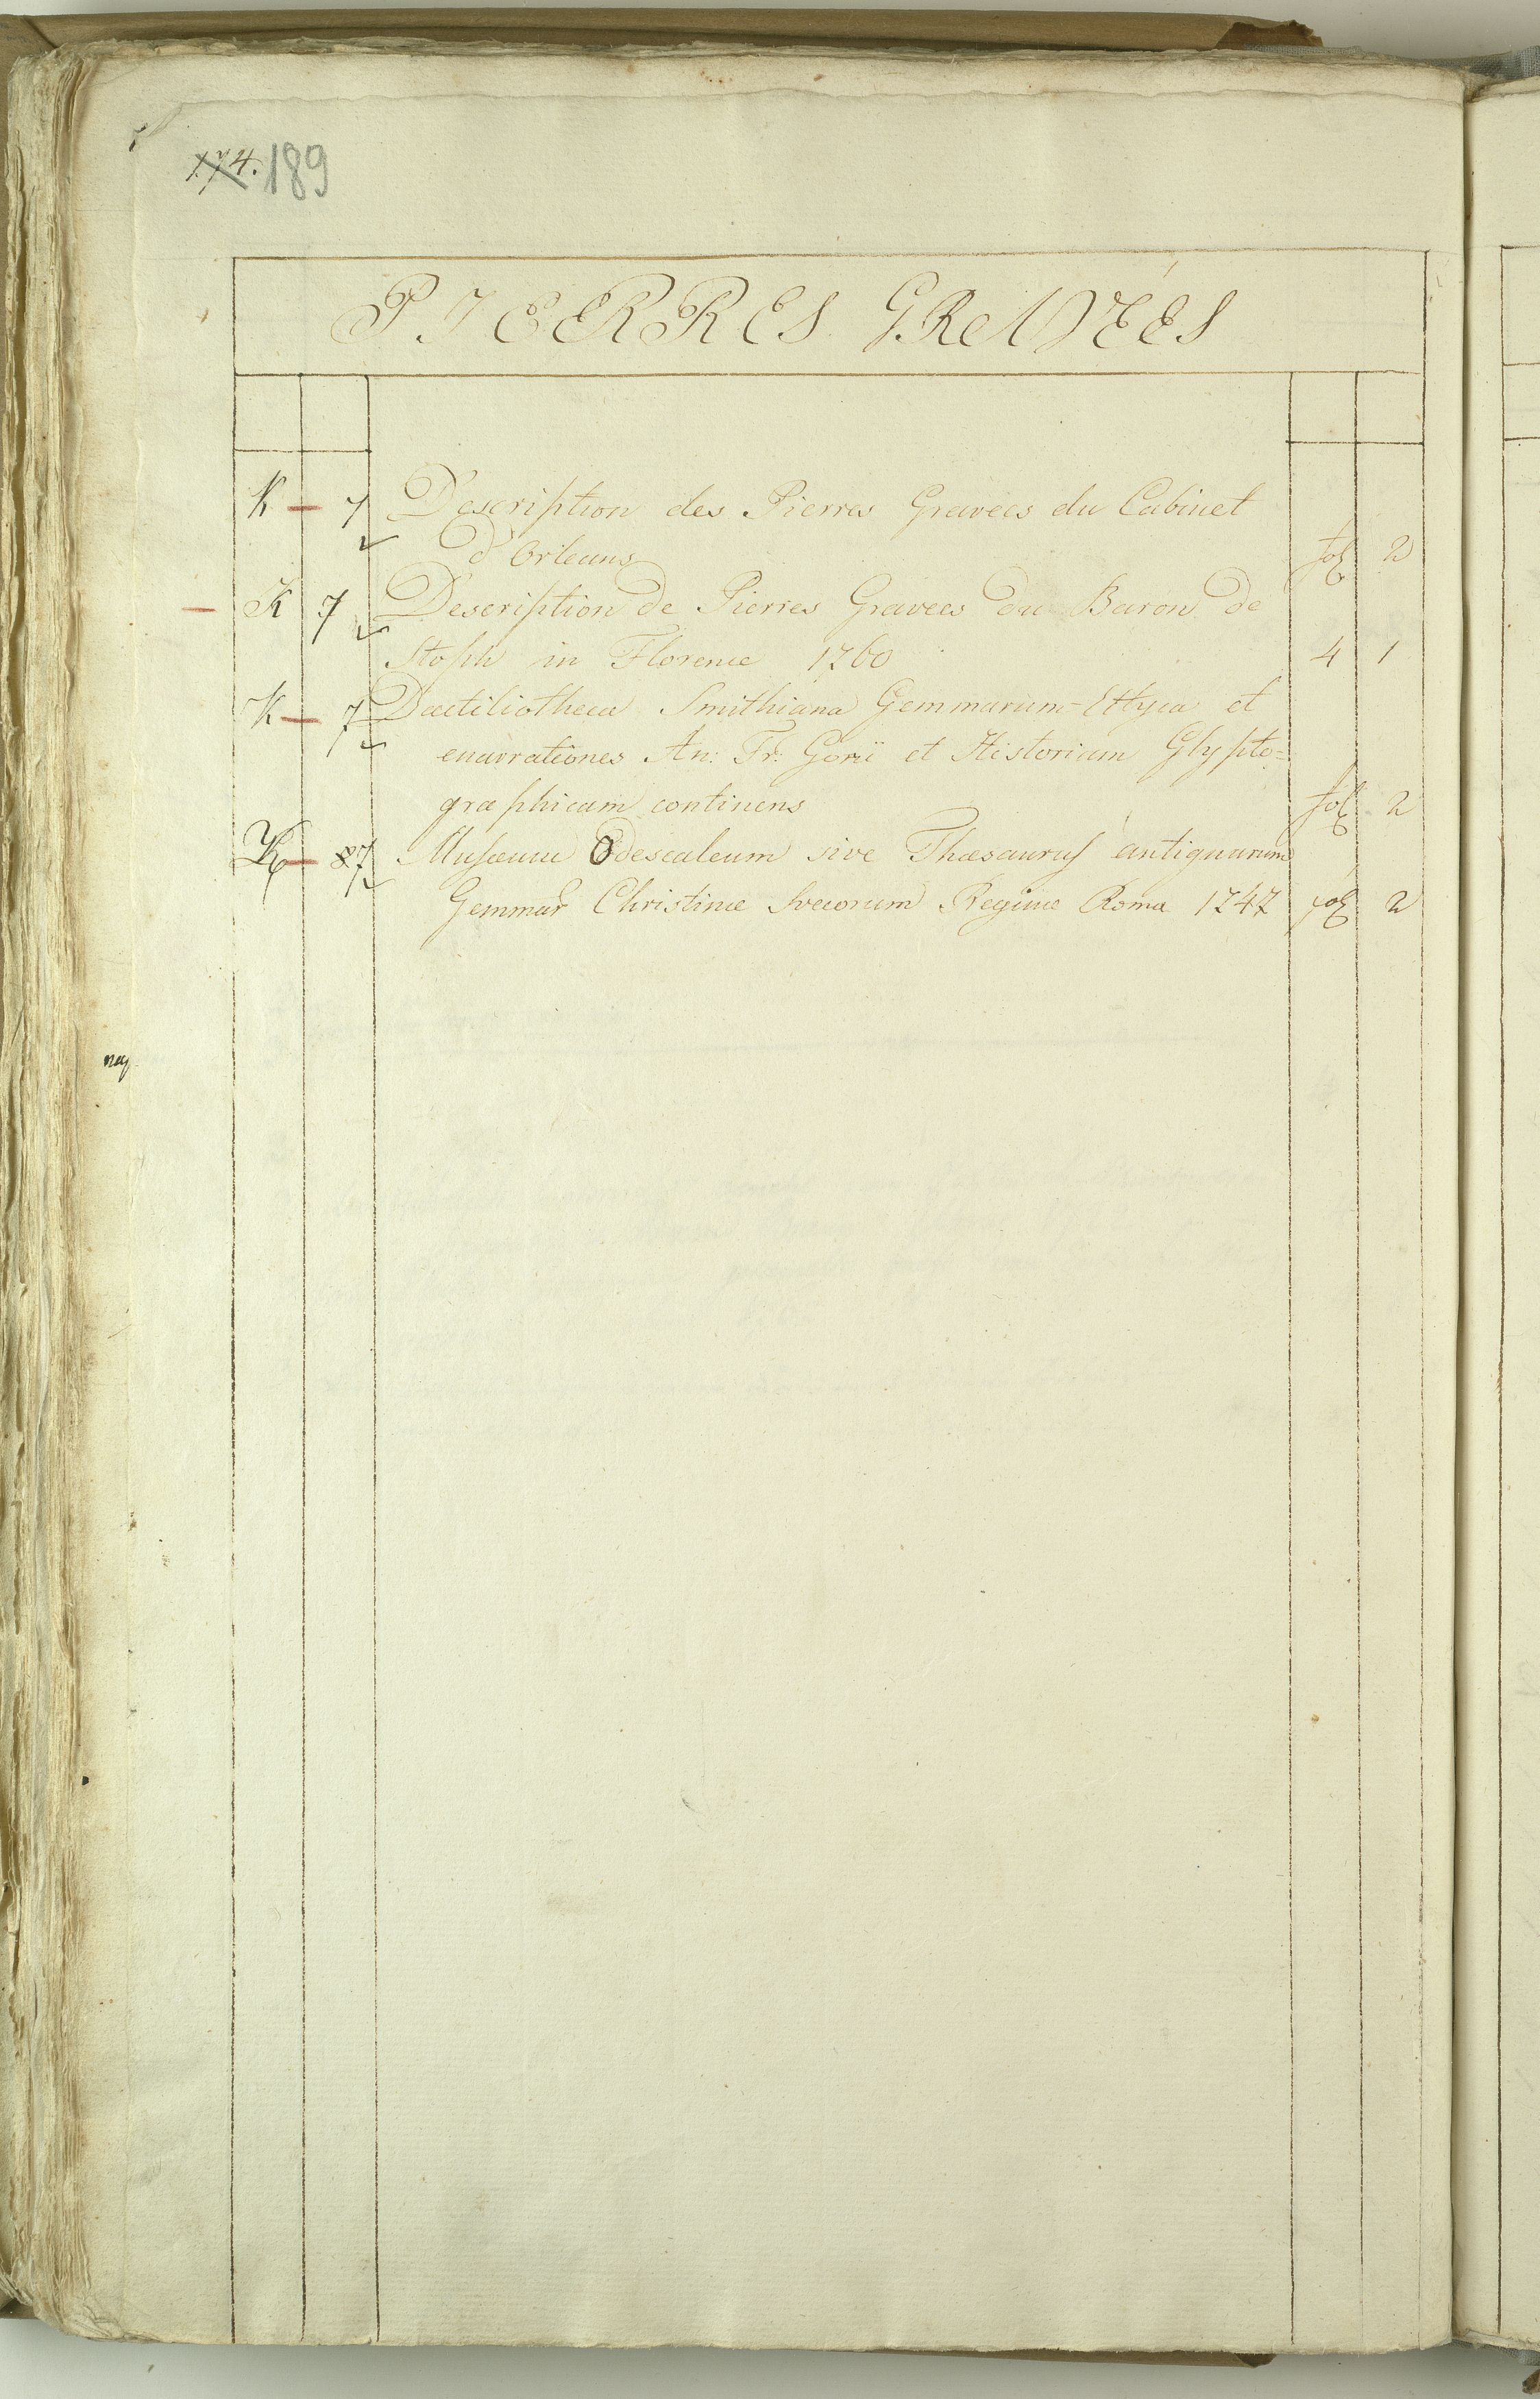 174. 189
PIERRES GRAVÉES
K - 7 Description des Pierres Gravées du Cabinet
d'Orleans fol 2
- K 7 Description de Pierres Gravees du Baron de
Stosph in Florence 1760 4 1
K - 7 Dactiliotheca Smithiana Gemmarum Ettypa et
enarrationes An: Fr: Gorii et Historiam Glypto=
graphicam continens fol 2
K - 7 Musæum Odescaleum sive Thæsaurus antiquarum
Gemmar Christinæ Svecorum Reginæ Roma 1747 fol 2